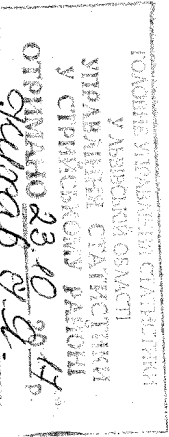 ГОЛОВНЕ УПРАВЛІННЯ СТАТИСТИКИ
У ЛЬВІВСЬКІЙ ОБЛАСТІ
УПРАВЛІННЯ СТАТИСТИКИ
У СТРИЙСЬКОМУ РАЙОНІ
ОТРИМАНО 23.10 20 р.